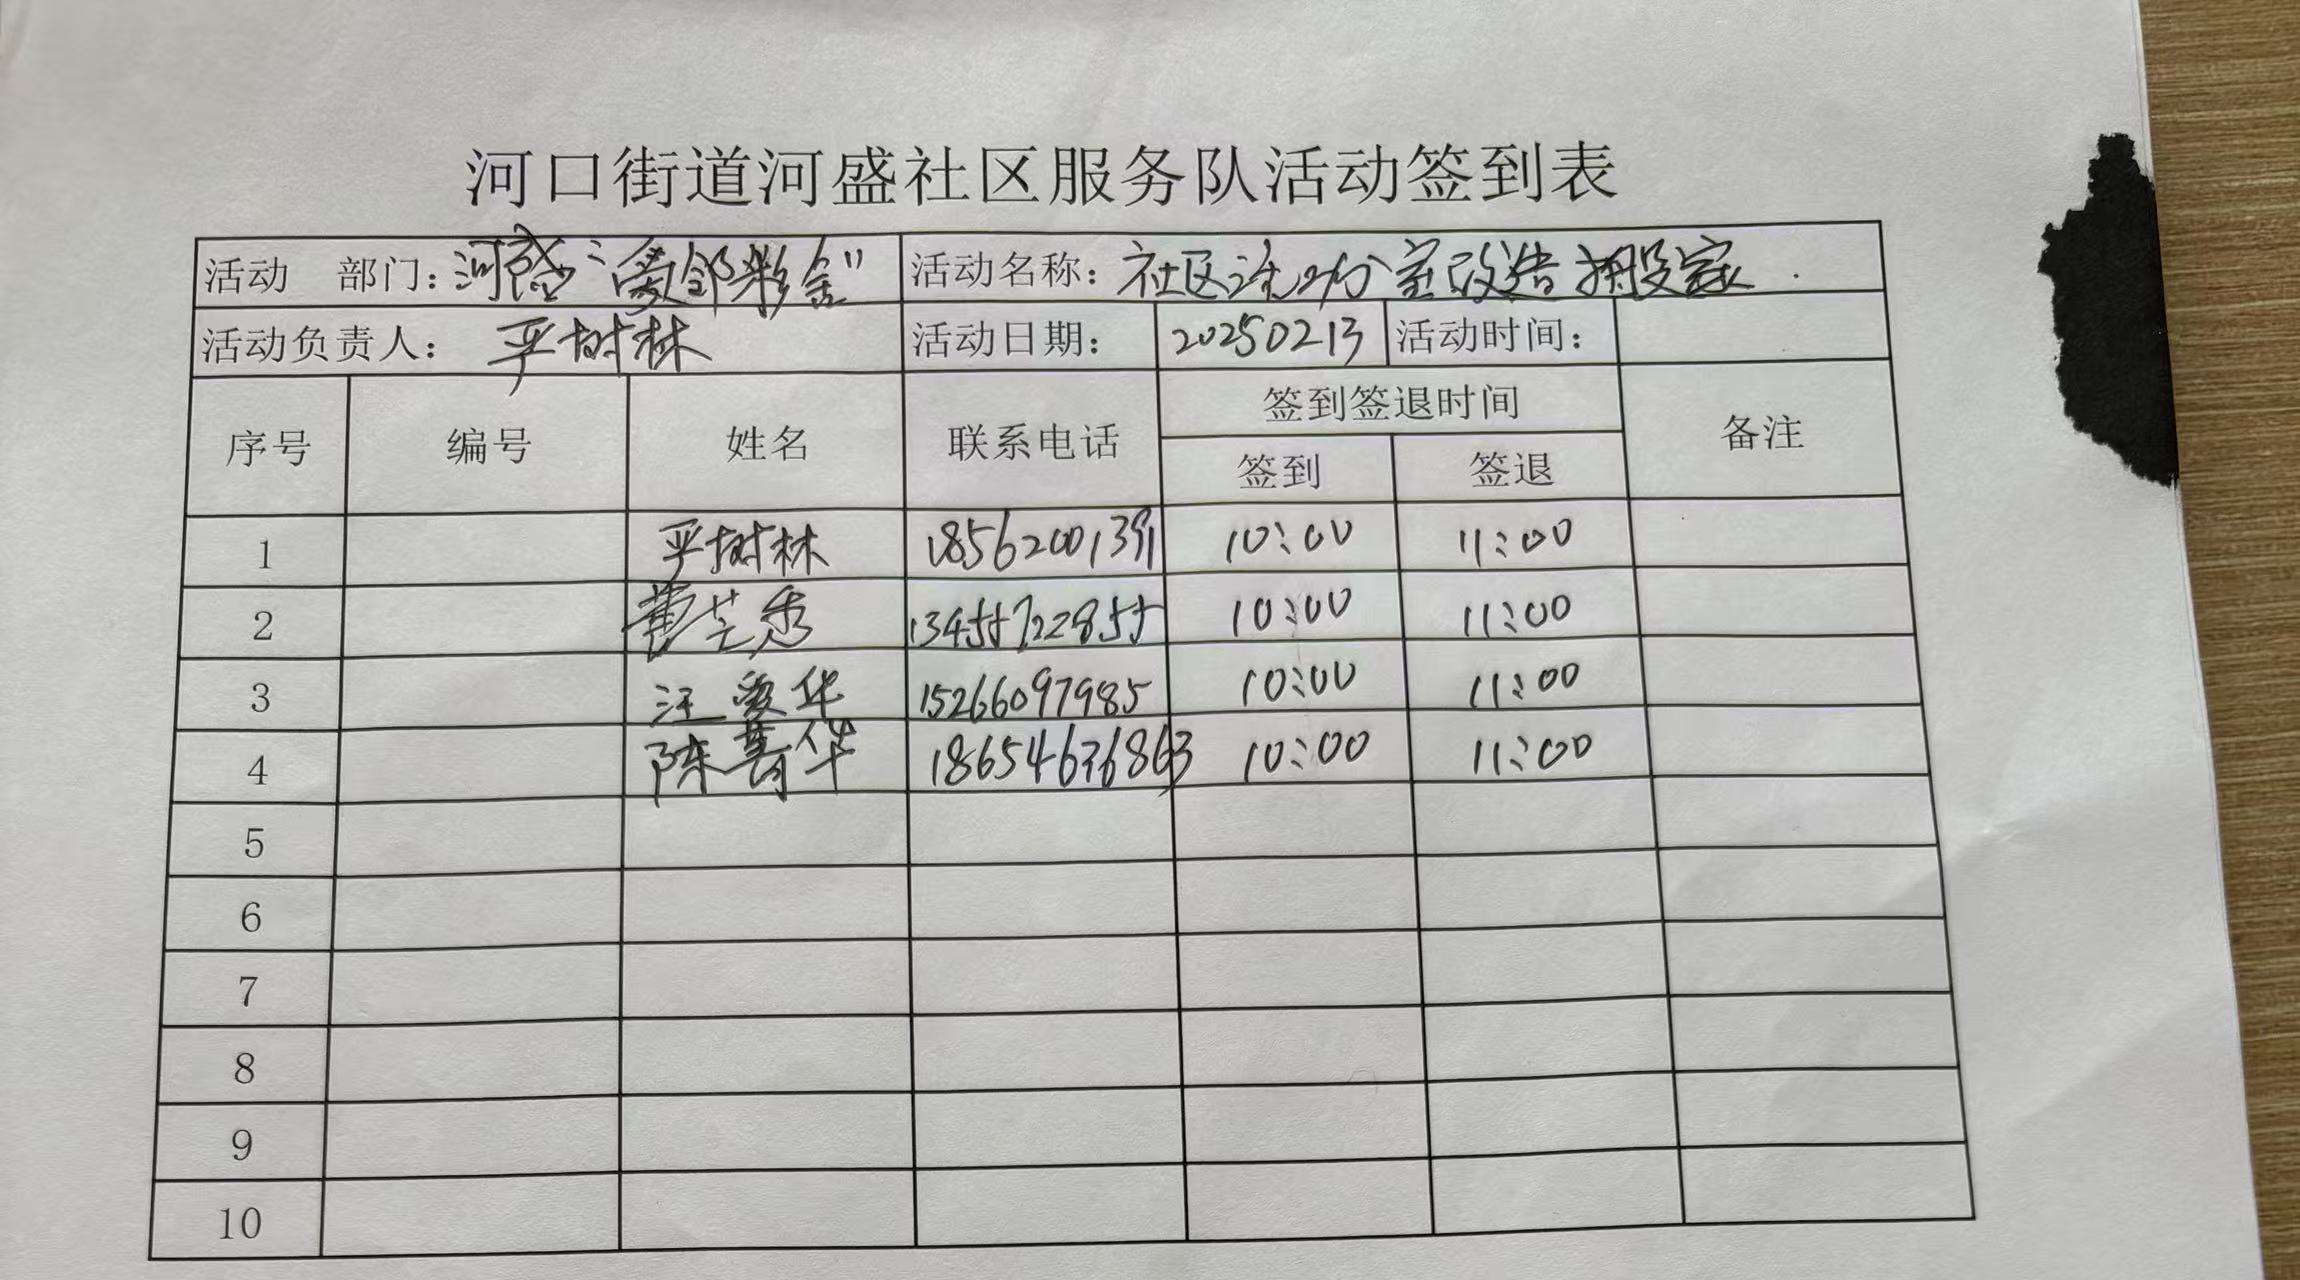 河口街道河盛社区服务队活动签到表
活动 部门：河盛“爱邻彩金” 活动名称：社区 室改造 搬家
活动负责人：平树林 活动日期：20250213 活动时间：
序号 编号 姓名 联系电话 签到签退时间 备注
签到 签退
1 平树林 10:00 11:00
2 黄芝秀 13455722855 10:00 11:00
3 汪爱华 15266097985 10:00 11:00
4 陈菁华 18654636863 10:00 11:00
5
6
7
8
9
10